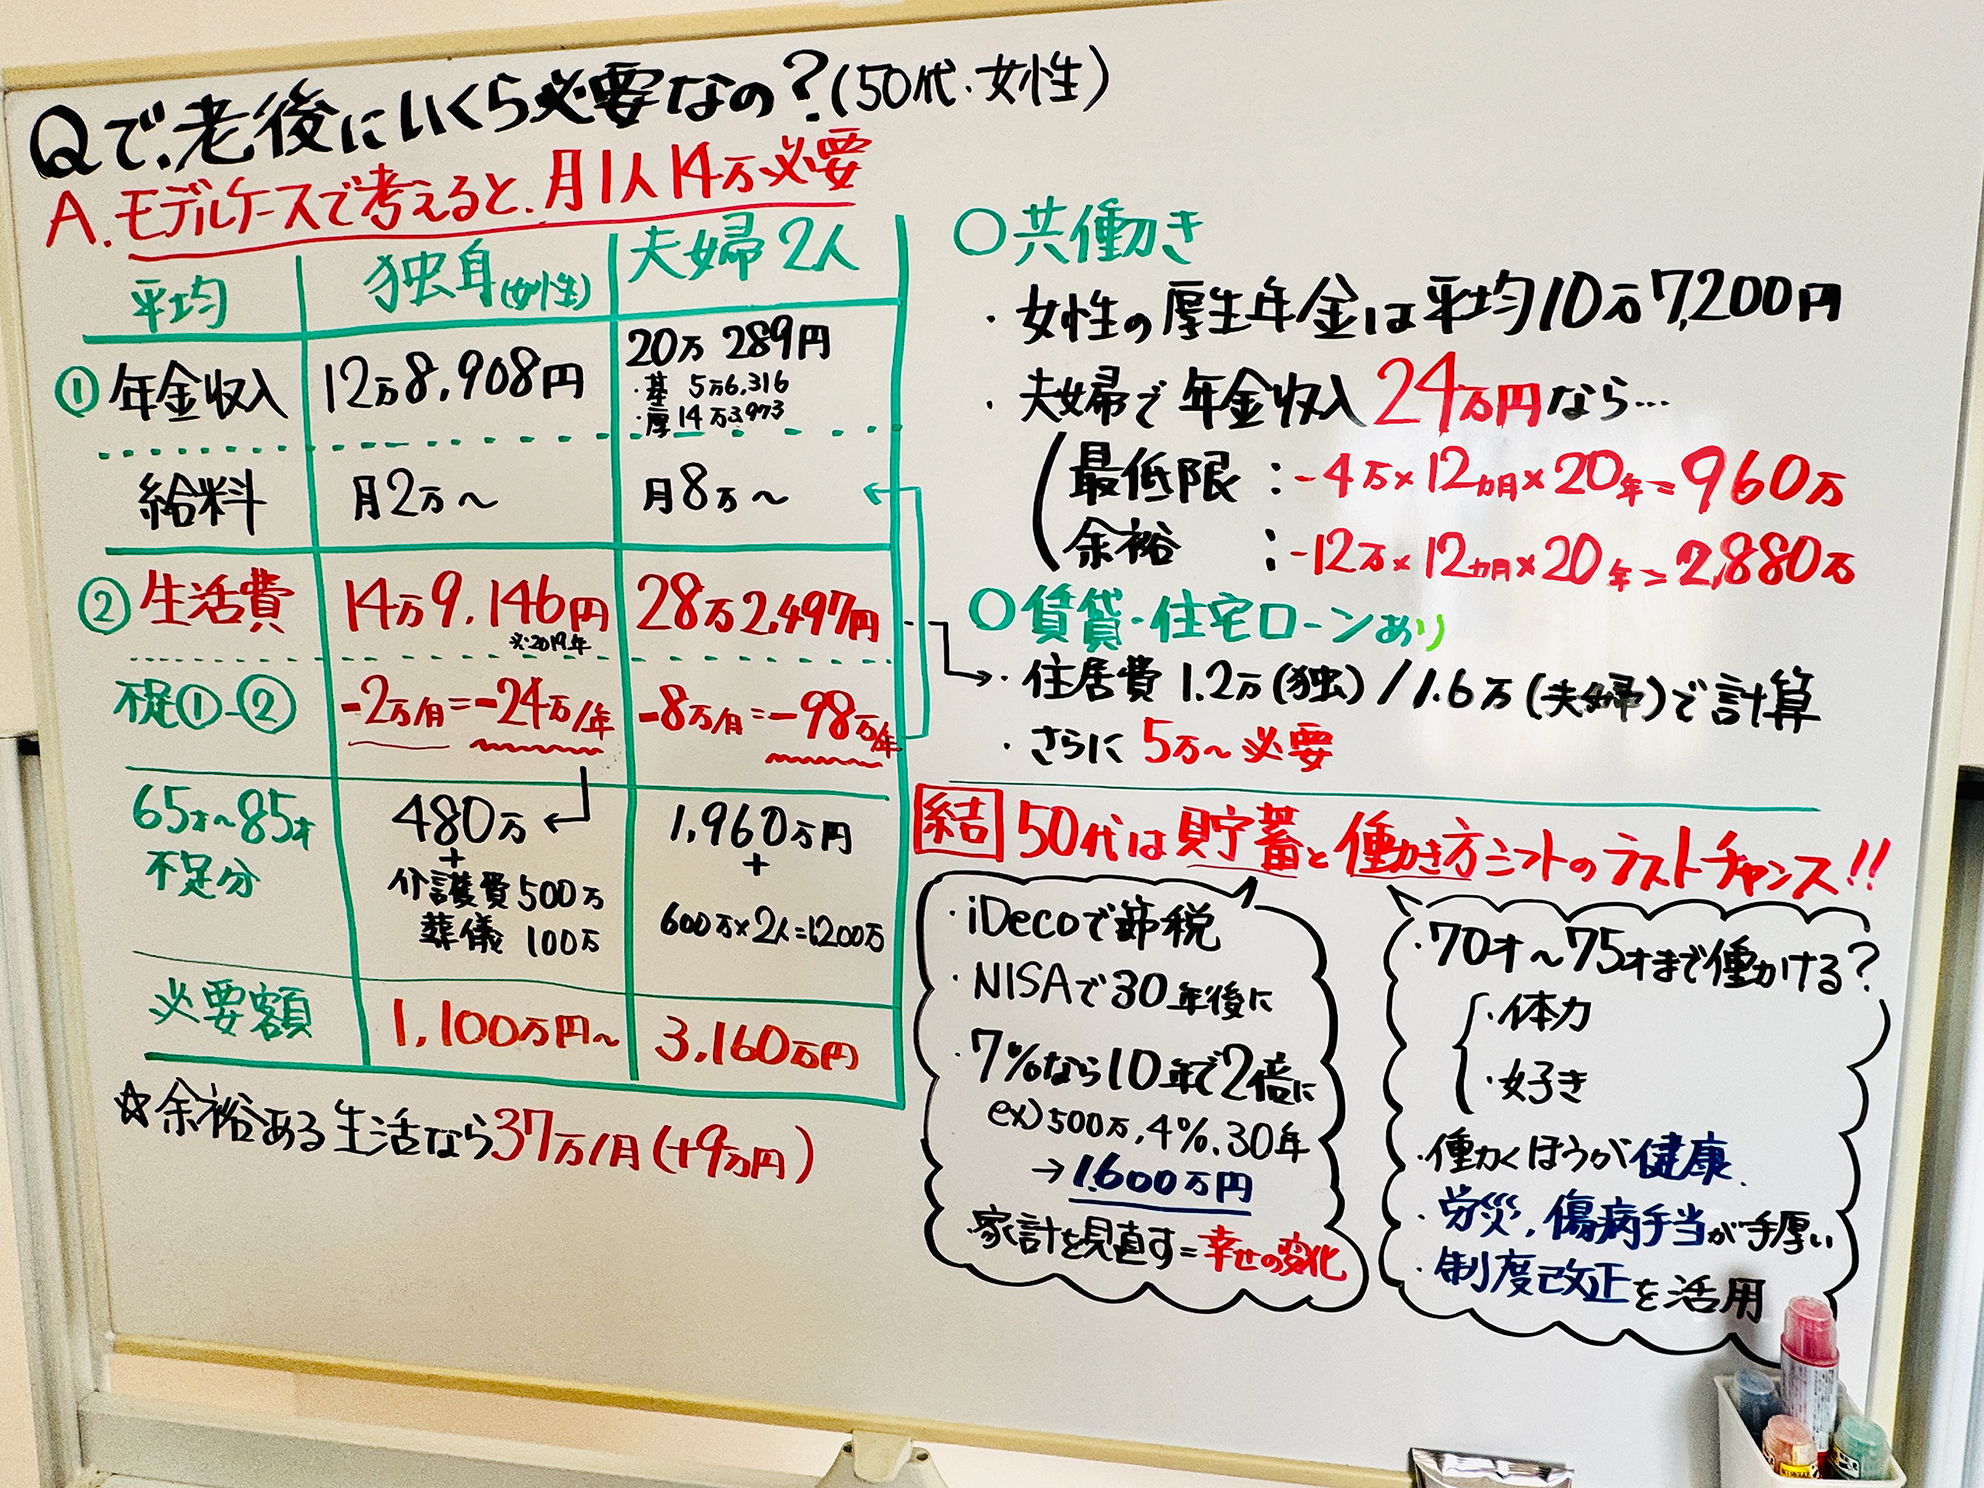 Qで、老後にいくら必要なの？(50代・女性)
A.モデルケースで考えると、月1人14万必要
平均 独身(女性) 夫婦2人
①年金収入 12万8,908円 20万289円
・基 5万6,316
・厚14万3,973
給料 月2万〜 月8万〜
②生活費 14万9,146円 28万2,497円
※2019年
不足①-② -2万/月=-24万/年 -8万/月=-98万/年
65才〜85才 480万 1,960万円
不足分 + +
介護費500万 600万×2人=1200万
葬儀 100万
必要額 1,100万円〜 3,160万円
☆余裕ある生活なら37万/月(+9万円)
○共働き
・女性の厚生年金は平均10万7,200円
・夫婦で年金収入24万円なら…
最低限：-4万×12カ月×20年=960万
余裕：-12万×12カ月×20年=2,880万
○賃貸・住宅ローンあり
・住居費1.2万(独)/1.6万(夫婦)で計算
・さらに5万〜必要
結 50代は貯蓄と働き方シフトのラストチャンス!!
・iDecoで節税
・NISAで30年後に
・7%なら10年で2倍に
ex)500万,4%,30年
→1.600万円
家計を見直す=幸せの変化
・70才〜75才まで働かける？
・体力
・好き
・働くほうが健康
・労災,傷病手当が手厚い
・制度改正を活用